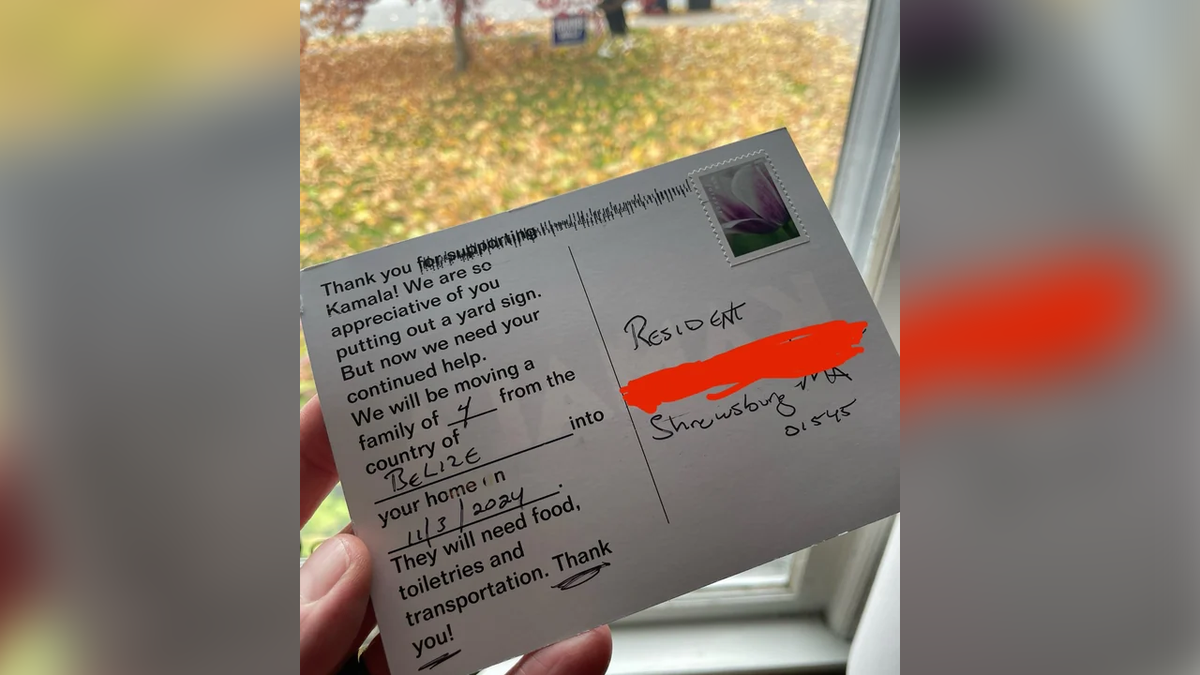 Thank you for supporting
Kamala! We are so
appreciative of you
putting out a yard sign.
But now we need your
continued help.
We will be moving a
family of 4 from the
country of
BELIZE into
your home on
11/3/2024.
They will need food,
toiletries and
transportation. Thank
you!
RESIDENT
MA
Shrewsbury
01545